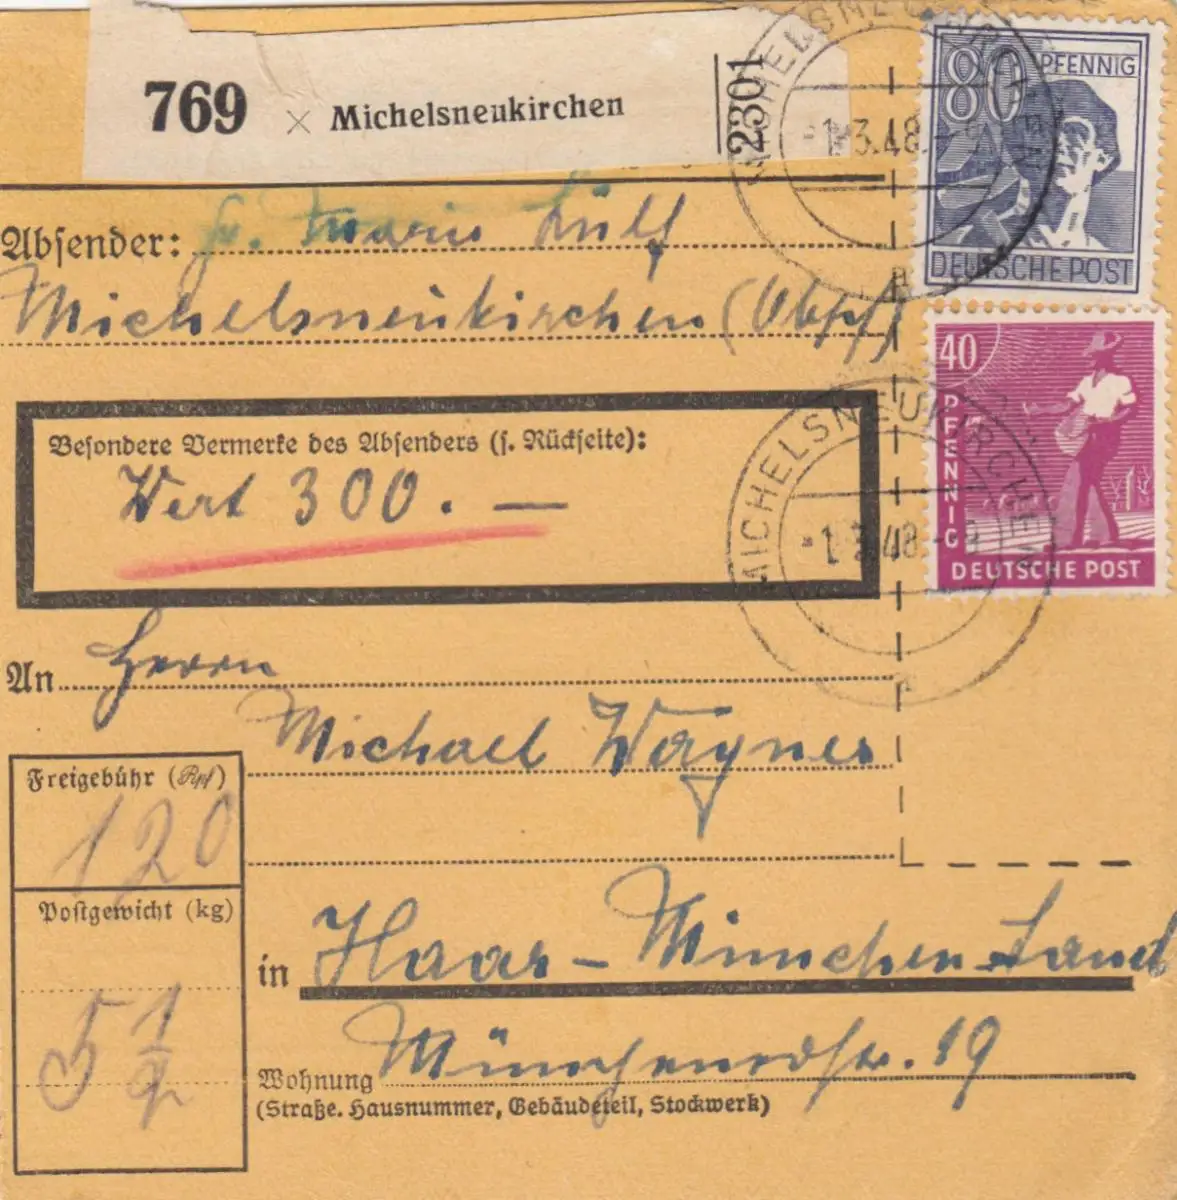 769 × Michelsneukirchen
2301
80 PFENNIG
DEUTSCHE POST
MICHELSNEUKIRCHEN
-1.3.48.-9
a
Absender: Fr. Marie Lülf
Michelsneukirchen (Obpf)
40 PFENNIG
DEUTSCHE POST
MICHELSNEUKIRCHEN
-1.3.48.-9
a
Besondere Vermerke des Absenders (s. Rückseite):
Wert 300.—
An Herrn
Michael Wagner
Freigebühr (Rpf)
120
Postgewicht (kg)
5 1/2
in Haar – München-Land
Wohnung Münchenerstr. 19
(Straße. Hausnummer, Gebäudeteil, Stockwerk)